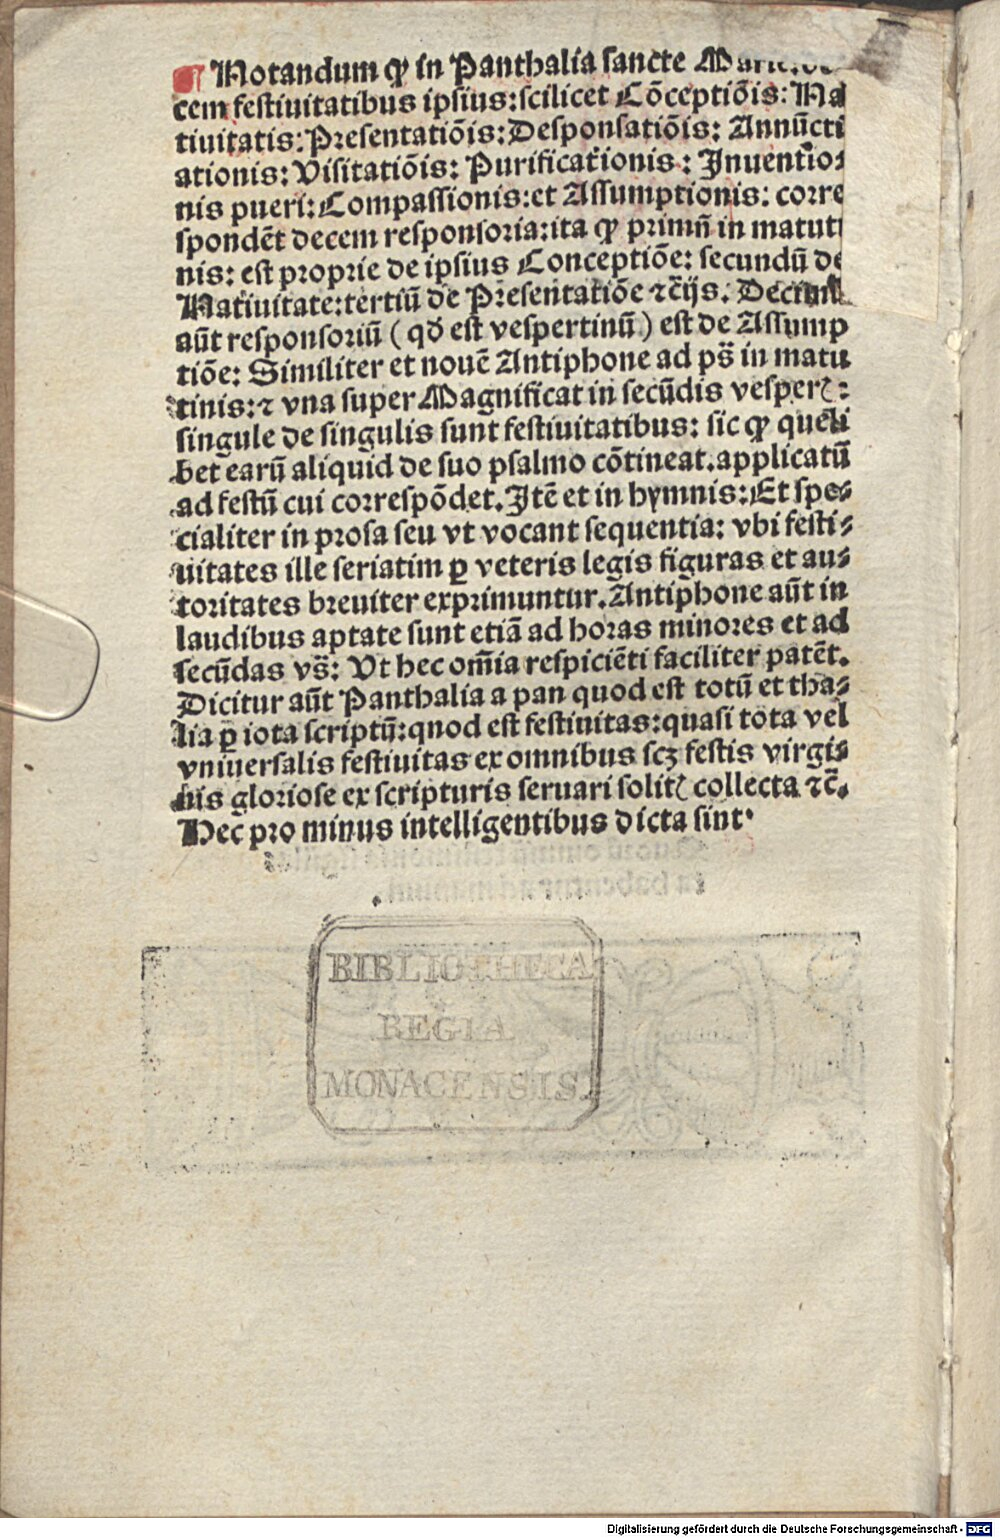 ¶ Notandum ꝙ in Panthalia sancte Marie:
cem festiuitatibus ipsius:scilicet Cõceptiõis: Na
tiuitatis:Presentatiõis:Desponsatiõis: Annũcti
ationis: Visitatiõis: Purificationis: Inuentio⸗
nis pueri: Compassionis:et Assumptionis: corre
spondẽt decem responsoria:ita ꝙ primũ in matuti
nis: est proprie de ipsius Conceptiõe: secundũ de
Natiuitate:tertiũ de Presentatiõe ⁊c̃ijs. Decimũ
aũt responsoriũ (qđ est vespertinũ) est de Assump
tiõe: Similiter et nouẽ Antiphone ad ps̃ in matu
tinis:⁊ vna super Magnificat in secũdis vesperꝭ:
singule de singulis sunt festiuitatibus: sic ꝙ queli
bet earũ aliquid de suo psalmo cõtineat.applicatũ
ad festũ cui correspõdet. Itẽ et in hymnis: Et spe⸗
cialiter in prosa seu vt vocant sequentia: vbi festi⸗
uitates ille seriatim ꝑ veteris legis figuras et au⸗
toritates breuiter exprimuntur. Antiphone aũt in
laudibus aptate sunt etiã ad horas minores et ad
secũdas vs̃: Vt hec om̃ia respiciẽti faciliter patẽt.
Dicitur aũt Panthalia a pan quod est totũ et tha⸗
lia ꝑ iota scriptũ:quod est festiuitas:quasi tota vel
vniuersalis festiuitas ex omnibus scꝫ festis virgi⸗
nis gloriose ex scripturis seruari solitꝭ collecta ⁊c̃.
Hec pro minus intelligentibus dicta sint.
BIBLIOTHECA
REGIA
MONACENSIS.
Digitalisierung gefördert durch die Deutsche Forschungsgemeinschaft - DFG